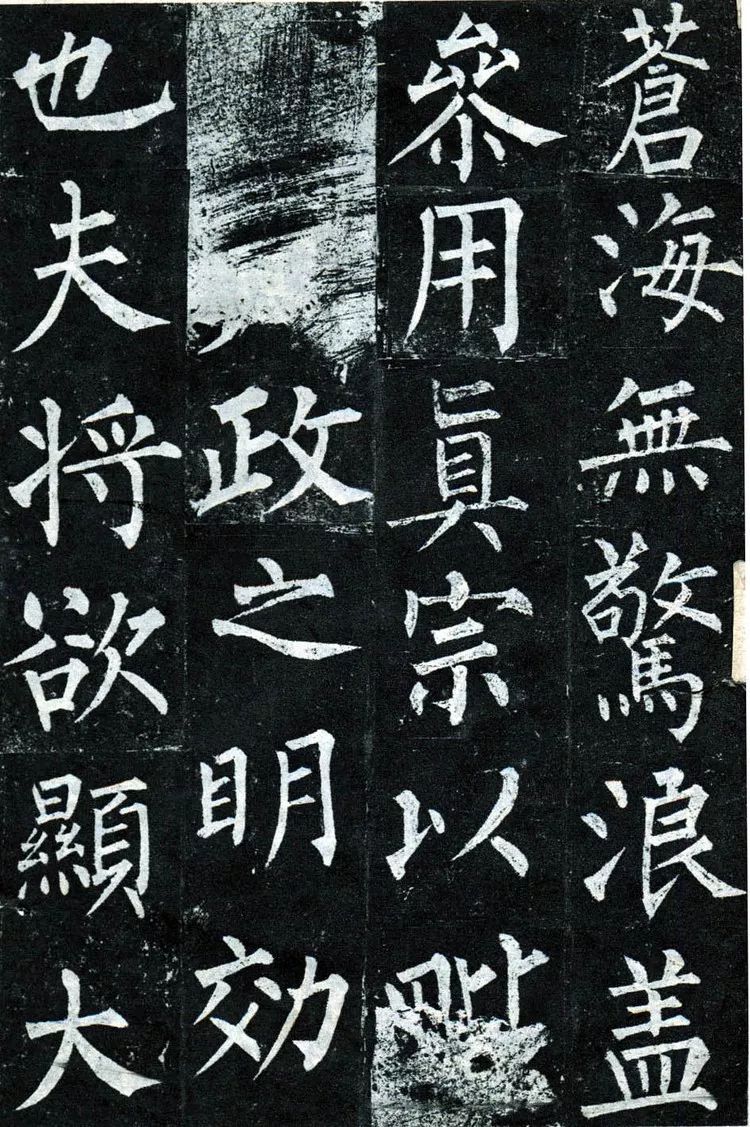 蒼海無驚浪盖
叅用眞宗以毗
政之明効
也夫将欲顯大